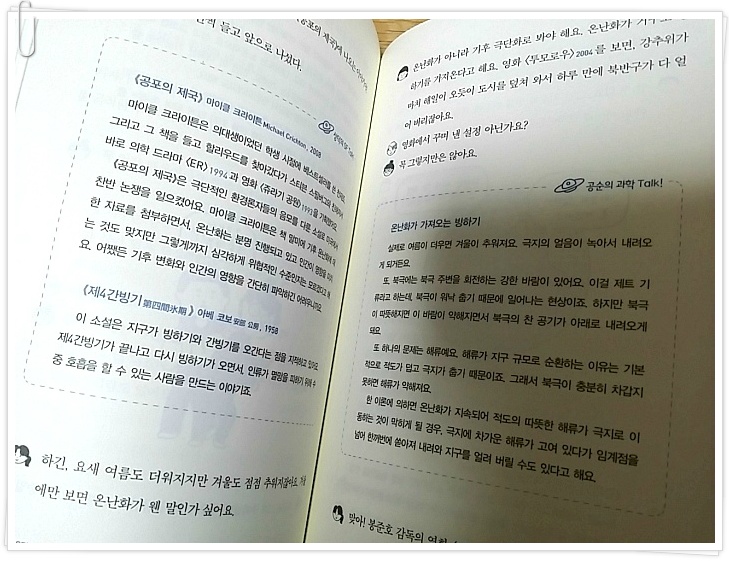 들고 앞으로 나섰다.
《공포의 제국》 마이클 크라이튼 Michael Crichton, 2008
마이클 크라이튼은 의대생이었던 학생 시절에 베스트셀러를 쓴 천재로,
그리고 그 책을 들고 할리우드를 찾아갔다가 스티븐 스필버그와
바로 의학 드라마 〈ER〉1994과 영화 〈쥬라기 공원〉1993을 기획했어요.
《공포의 제국》은 극단적인 환경론자들의 음모를 다룬 소설로
찬반 논쟁을 일으켰어요. 마이클 크라이튼은 책 말미에 기후 온난화에
한 자료를 첨부하면서, 온난화는 분명 진행되고 있고 인간이 영향을
는 것도 맞지만 그렇게까지 심각하게 위협적인 수준인지는 모르겠다고 해
요. 어쨌든 기후 변화와 인간의 영향을 간단히 파악하긴 어려우니까요.
《제4간빙기第四間氷期》 아베 코보 安部 公房, 1958
이 소설은 지구가 빙하기와 간빙기를 오간다는 점을 지적하고 있어요.
제4간빙기가 끝나고 다시 빙하기가 오면서, 인류가 멸망을 피하기 위해 수
중 호흡을 할 수 있는 사람을 만드는 이야기죠.
하긴, 요새 여름도 더워지지만 겨울도 점점 추워지잖아요. 겨울
에만 보면 온난화가 웬 말인가 싶어요.
온난화가 아니라 기후 극단화로 봐야 해요. 온난화가
하기를 가져온다고 해요. 영화 〈투모로우〉2004를 보면, 강추위가
마치 해일이 오듯이 도시를 덮쳐 와서 하루 만에 북반구가 다 얼
어 버리잖아요.
영화에서 꾸며 낸 설정 아닌가요?
꼭 그렇지만은 않아요.
공순의 과학 Talk!
온난화가 가져오는 빙하기
실제로 여름이 더우면 겨울이 추워져요. 극지의 얼음이 녹아서 내려오
게 되거든요.
또, 북극에는 북극 주변을 회전하는 강한 바람이 있어요. 이걸 제트 기
류라고 하는데, 북극이 워낙 춥기 때문에 일어나는 현상이죠. 하지만 북극
이 따뜻해지면 이 바람이 약해지면서 북극의 찬 공기가 아래로 내려오게
돼요.
또 하나의 문제는 해류예요. 해류가 지구 규모로 순환하는 이유는 기본
적으로 적도가 덥고 극지가 춥기 때문이죠. 그래서 북극이 충분히 차갑지
못하면 해류가 약해져요.
한 이론에 의하면 온난화가 지속되어 적도의 따뜻한 해류가 극지로 이
동하는 것이 막히게 될 경우, 극지에 차가운 해류가 고여 있다가 임계점을
넘어 한꺼번에 쏟아져 내려와 지구를 얼려 버릴 수도 있다고 해요.
맞아! 봉준호 감독의 영화